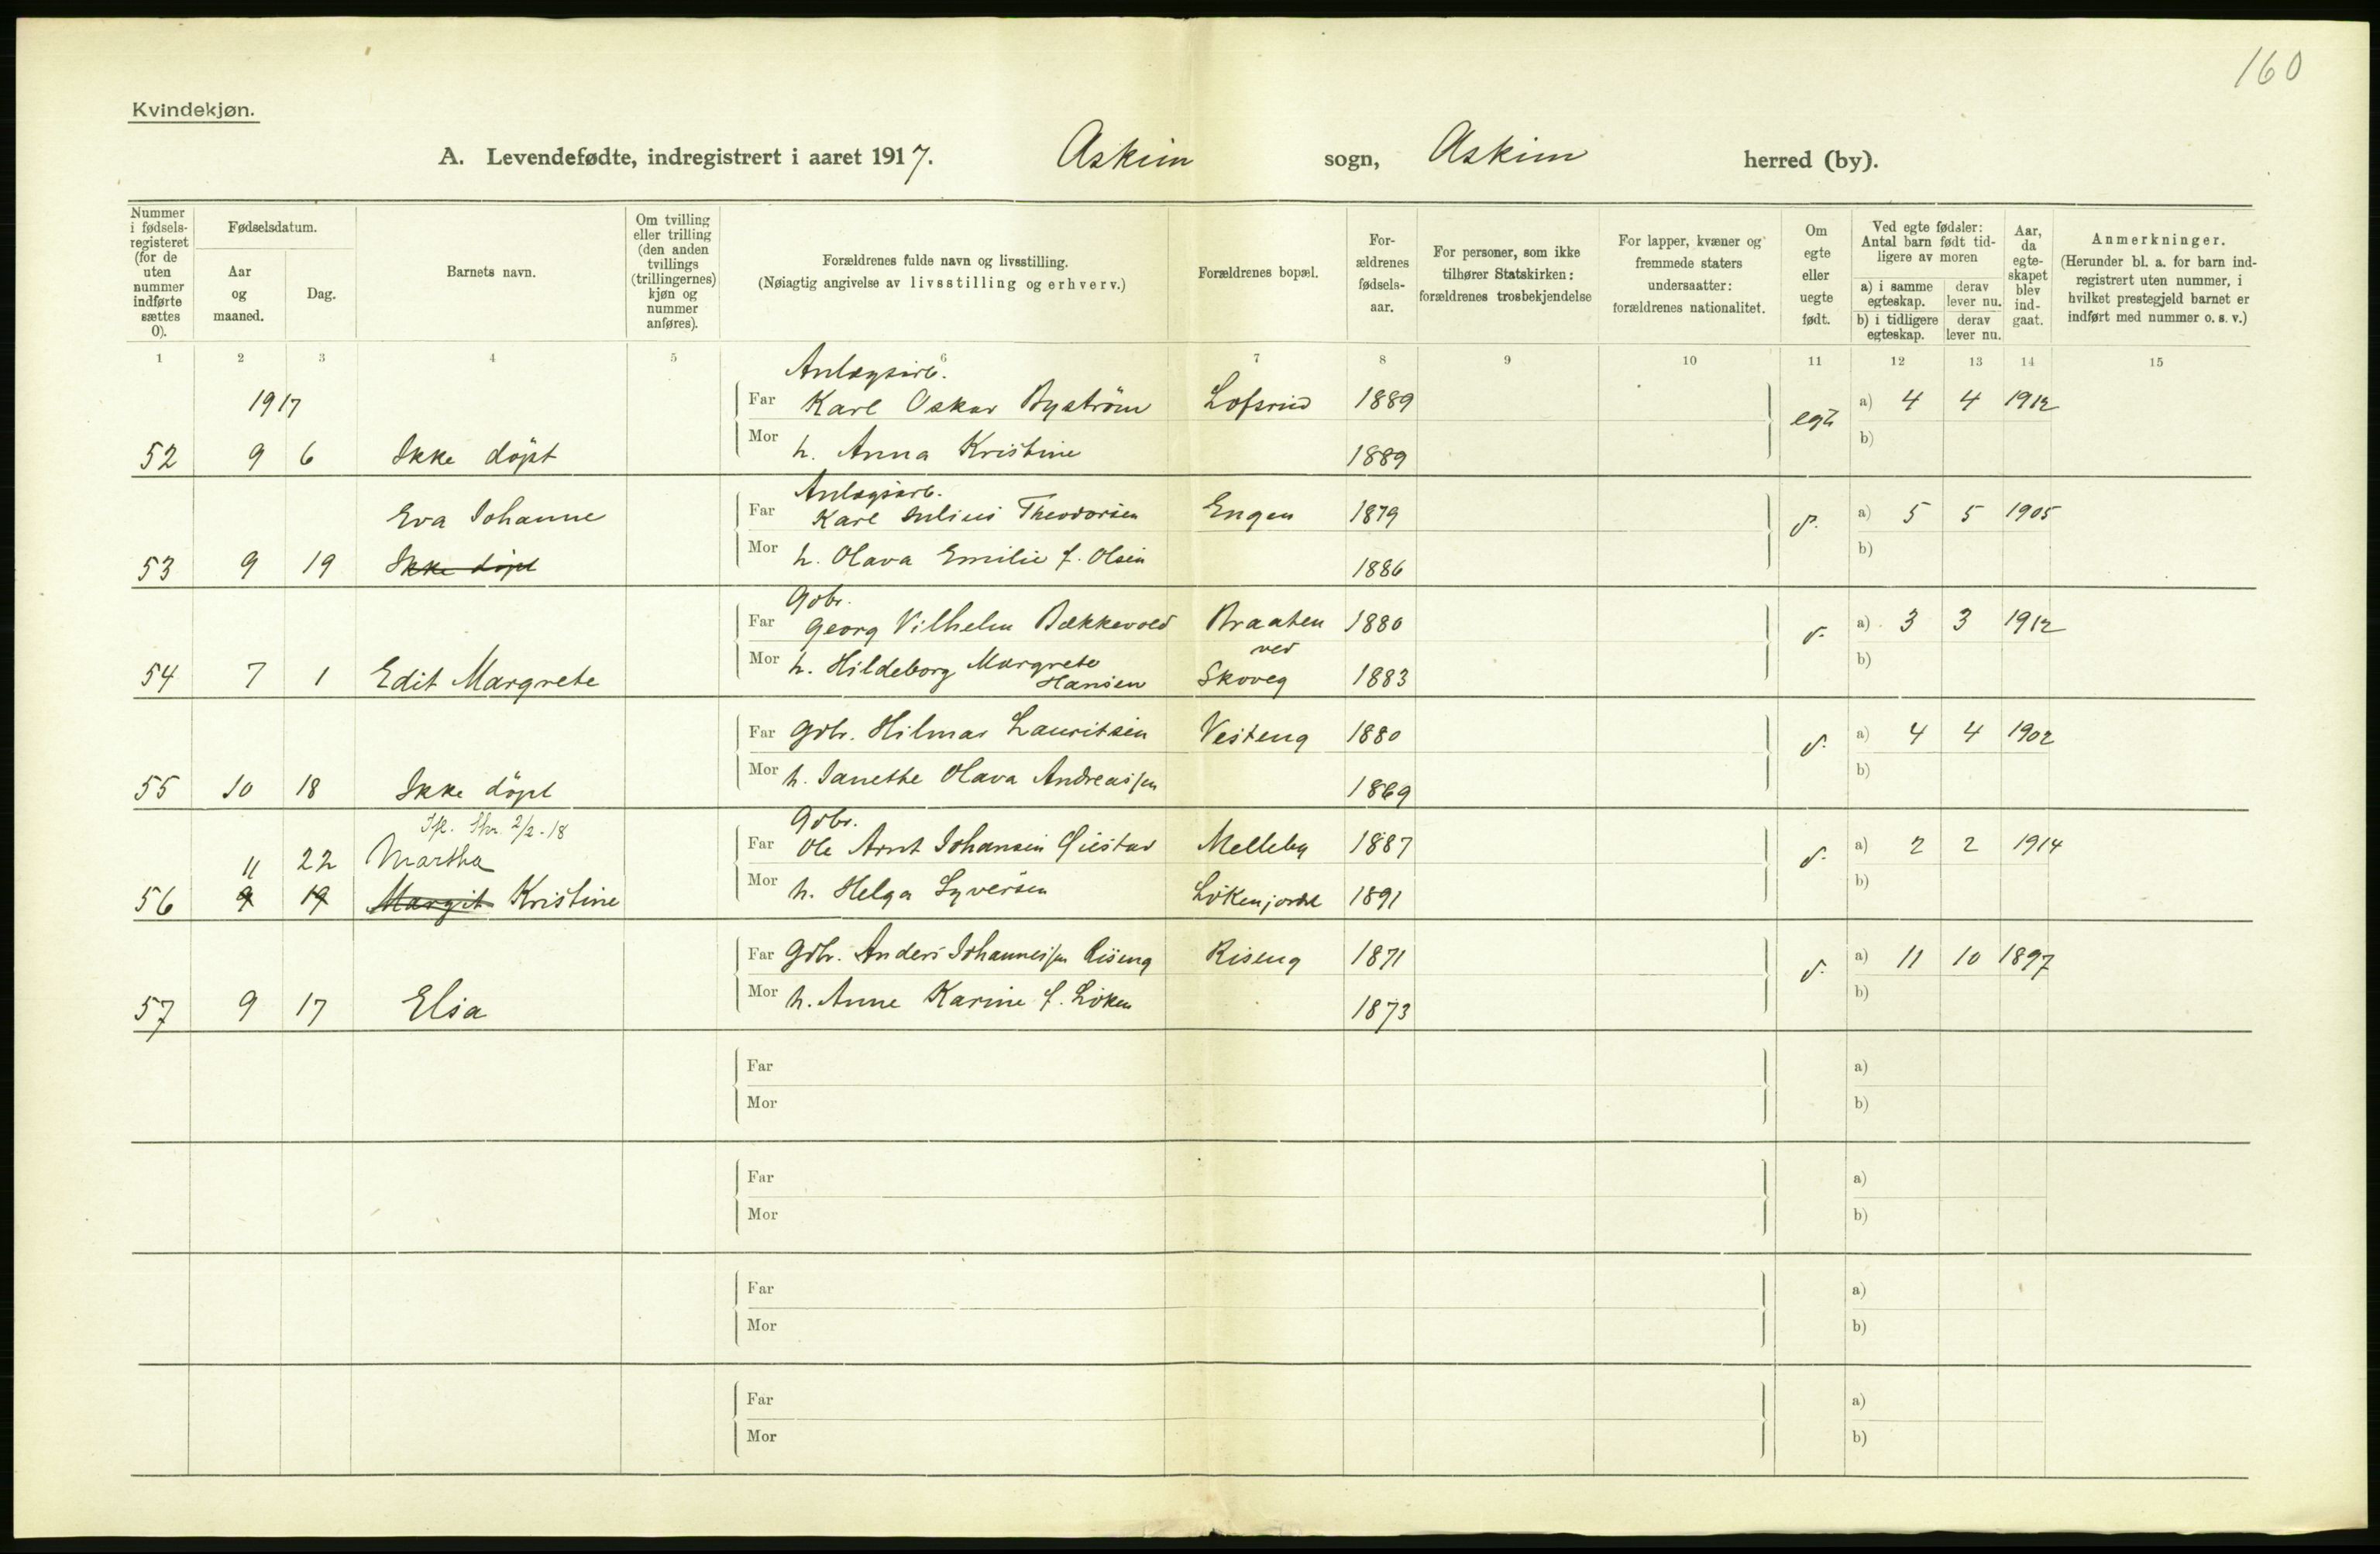 160
Kvindekjøn.
A. Levendefødte, indregistrert i aaret 1917. Askim sogn, Askim herred (by).
Nummer i fødsels-registeret (for de uten nummer indførte sættes 0).
Fødselsdatum.
Aar og maaned.
Dag.
Barnets navn.
Om tvilling eller trilling (den anden tvillings (trillingernes) kjøn og nummer anføres).
Forældrenes fulde navn og livsstilling.
(Nøiagtig angivelse av livsstilling og erhverv.)
Forældrenes bopæl.
For-ældrenes fødsels-aar.
For personer, som ikke tilhører Statskirken: forældrenes trosbekjendelse
For lapper, kvæner og fremmede staters undersaatter: forældrenes nationalitet.
Om egte eller uegte født.
Ved egte fødsler: Antal barn født tid-ligere av moren
a) i samme egteskap. derav lever nu.
b) i tidligere egteskap. derav lever nu.
Aar, da egte-skapet blev ind-gaat.
Anmerkninger.
(Herunder bl. a. for barn ind-registrert uten nummer, i hvilket prestegjeld barnet er indført med nummer o. s. v.)
1 2 3 4 5 6 7 8 9 10 11 12 13 14 15
Anlægsarb.
1917 Far Karl Oskar Byström Lofsrud 1889 egte a) 4 4 1912
52 9 6 Ikke döpt Mor h. Anna Kristine 1889 b)
Anlægsarb.
Eva Johanne Far Karl Julius Theodorsen Engen 1879 d. a) 5 5 1905
53 9 19 Ikke döpt Mor h. Olava Emilie f. Olsen 1886 b)
Gdbr.
Far Georg Vilhelm Bækkevold Braaten 1880 d. a) 3 3 1912
ved
54 7 1 Edit Margrete Mor h. Hildeborg Margrete Hansen Skoveg 1883 b)
Far Gdbr. Hilmar Lauritsen Vesteng 1880 d. a) 4 4 1902
55 10 18 Ikke döpt Mor h. Janethe Olava Andreassen 1869 b)
2/2-18
Gdbr.
11 22 Martha Far Ole Arnt Johansen Melleby 1887 d. a) 2 2 1914
56 9 19 Margit Kristine Mor h. Helga Syversen Lökenjordet 1891 b)
Far Gdbr. Anders Johannessen Riseng Riseng 1871 d. a) 11 10 1897
57 9 17 Elsa Mor h. Anne Karine f. Löken 1873 b)
Far a)
Mor b)
Far a)
Mor b)
Far a)
Mor b)
Far a)
Mor b)